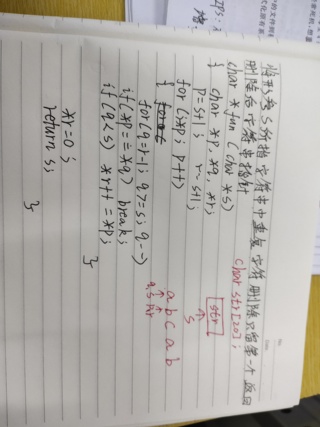 将形参s所指字符串中重复字符删除只留第一个 返回
删除后字符串指针
char *fun (char *s)
{ char *p, *q, *r;
p=s+1; r=s+1;
for (; *p; p++)
{
for(q=r-1; q>=s; q--)
if(*p==*q) break;
if(q<s) *r++ = *p;
}
*r=0;
return s;
}
char str[20];
str
s
a b c a b
q,s p,r